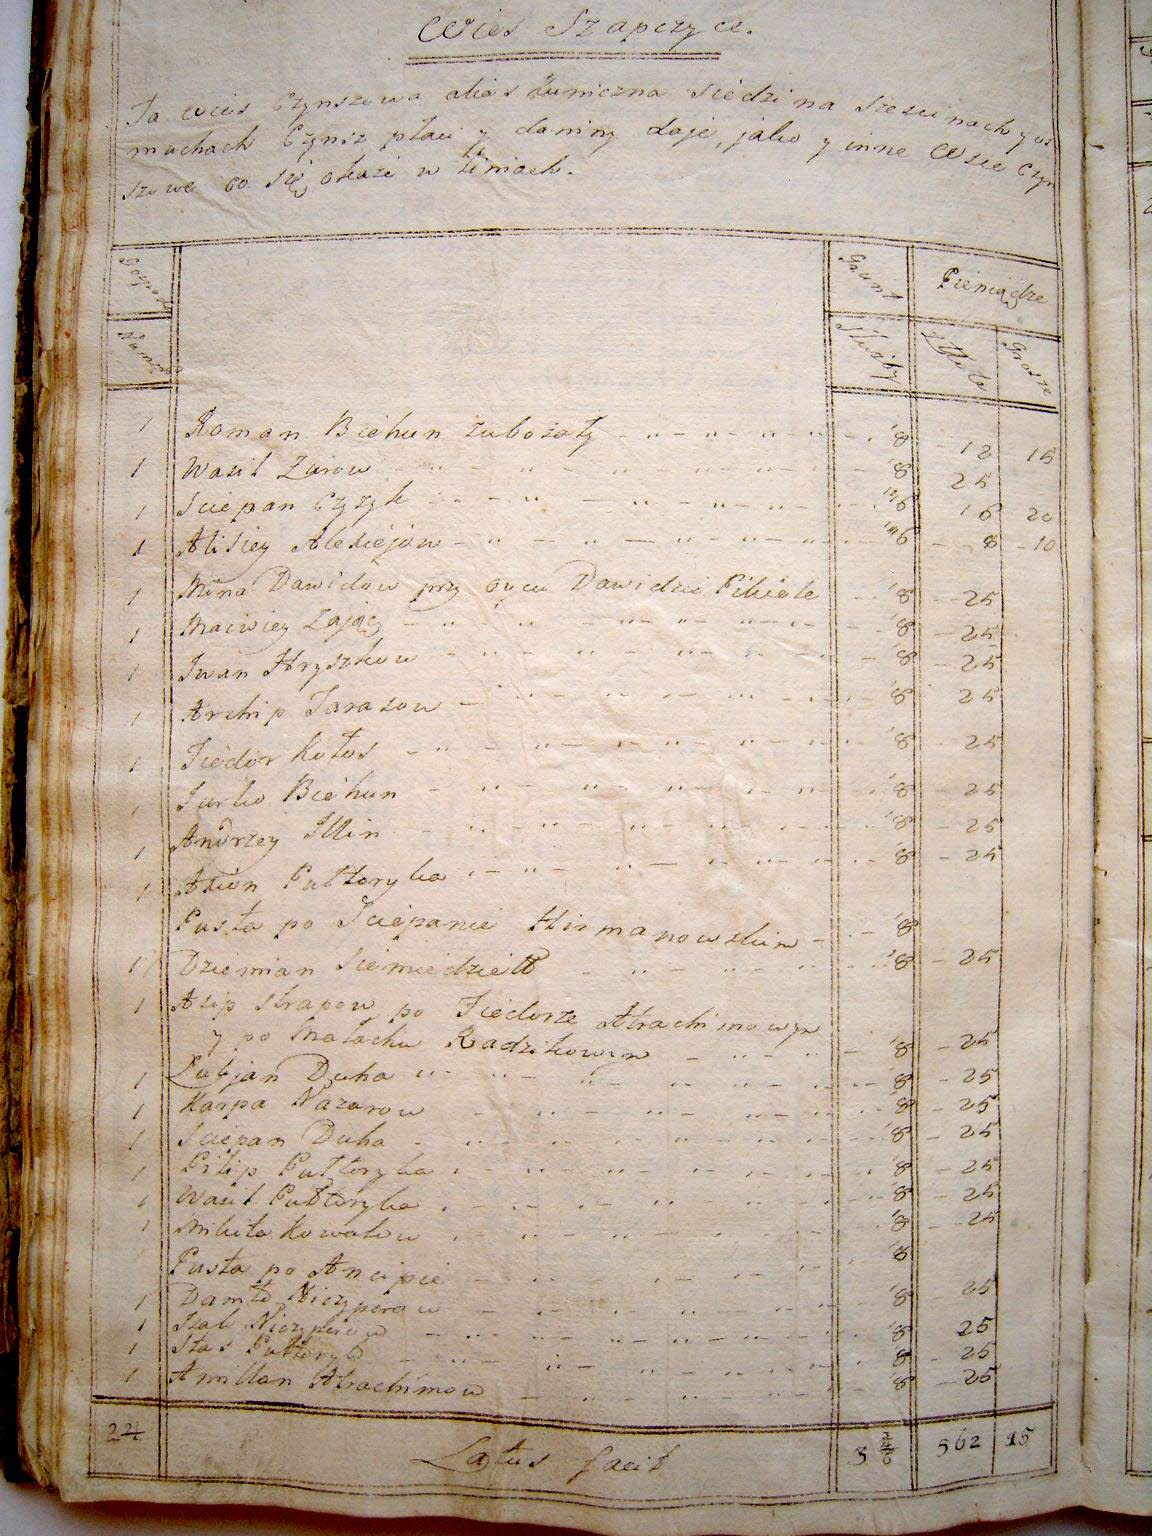 Wies Szapczyce.
Ta wies Czynszowa alias kuniczna siedzi na szescinach y os
muchach Czynsz płaci y daniny daje, jako y inne Wsie Czyn
szowe co się okaże w liniach.
Grunt Pieniądze
Numero Służby Złote Grosze
1 Roman Biehun zubożały 1/8 12 15
1 Wasil Zarow 1/8 25
1 Sciepan Czyżyk 1/16 16 20
1 Alisiey Alexiejow 1/16 8 10
1 Mina Dawidow przy oycu Dawidzie 1/8 25
1 Maciey Zając 1/8 25
1 Iwan Hryszkow 1/8 25
1 Archip Tarasow 1/8 25
1 Fiedor Kołos 1/8 25
1 Jurko Biehun 1/8 25
1 Andrzey Illin 1/8 25
1 Axion Pułtoryba 1/8 25
Pusta po Sciepanie Hirmanowskim 1/8
1 Dziemian 1/8 25
1 Asip po Fiedorze Atrachimowym
y po Małachu Radzikowym 1/8 25
1 Łukjan Duha 1/8 25
1 Karpa Nazarow 1/8 25
1 Sciepan Duha 1/8 25
1 Pilip Pułtoryba 1/8 25
1 Wasil Pułtoryba 1/8 25
1 Mikita Kowalow 1/8 25
Pusta po Ancipie 1/8
1 Daniło Niczyporow 1/8 25
1 Izak Niczyporow 1/8 25
1 Stas Pułtoryb 1/8 25
1 Amillan Atrachimow 1/8 25
24 Latus facit 3 562 15